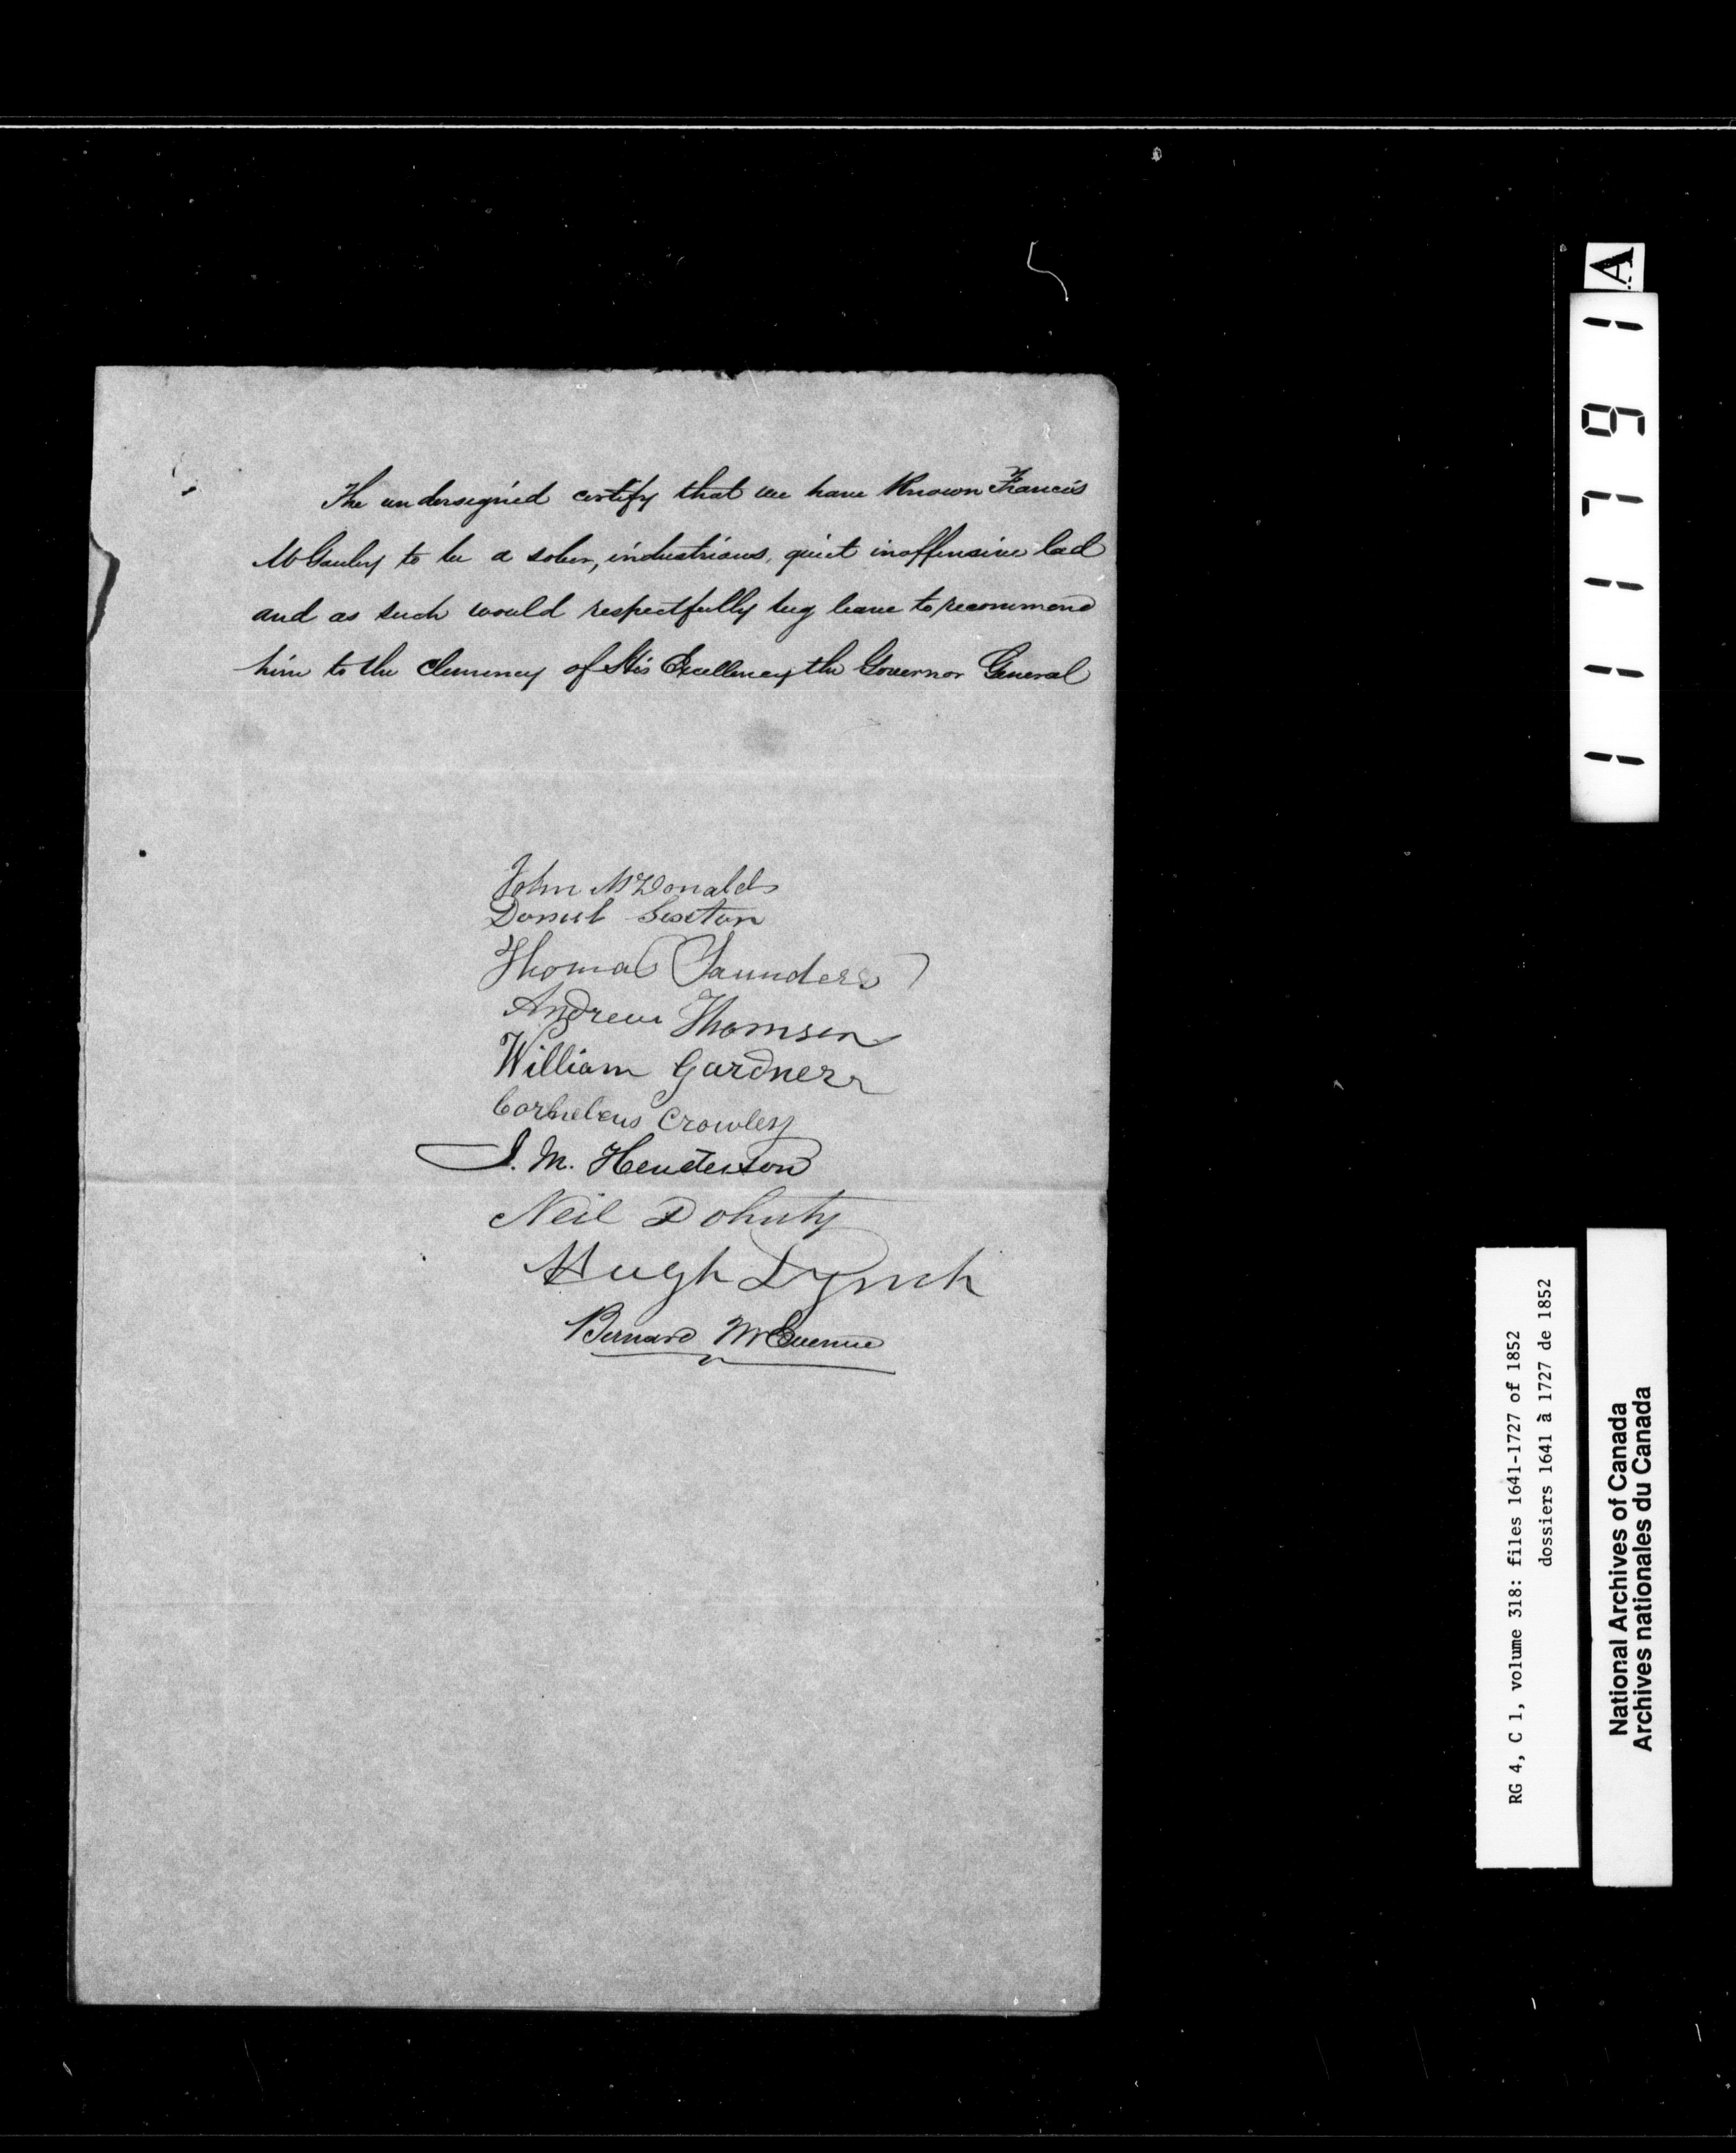 The undersigned certify that we have Known Francis
McGauley to be a sober, industrious, quiet inoffensive lad
and as such would respectfully beg leave to recommend
him to the Clemency of His Excellency the Governor General
John McDonald
Daniel Sexton
Thomas Saunders
Andrew Thomson
William Gardner
Cornelius Crowley
J. M. Henderson
Neil Dohuty
Hugh Lynch
Bernard
A
111791
RG 4, C 1, volume 318: files 1641-1727 of 1852
dossiers 1641 à 1727 de 1852
National Archives of Canada
Archives nationales du Canada